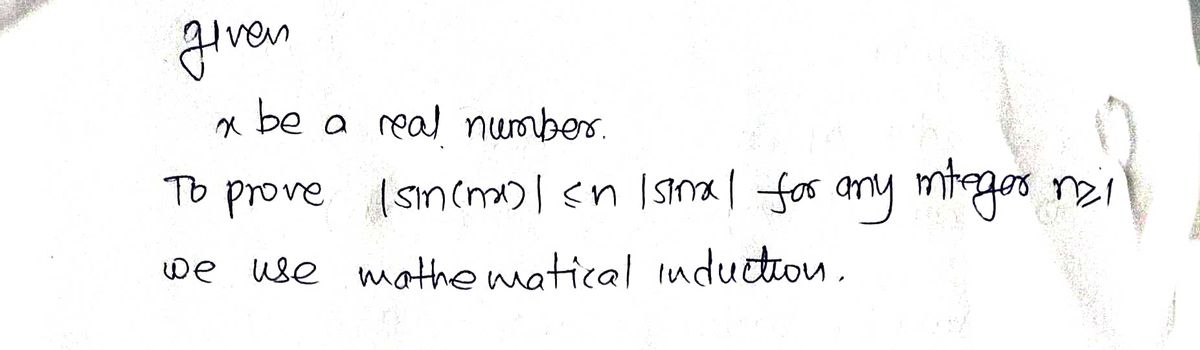 given
x be a real number.
To prove |sin(nx)| ≤n |sinx| for any integer n≥1
we use mathematical induction.